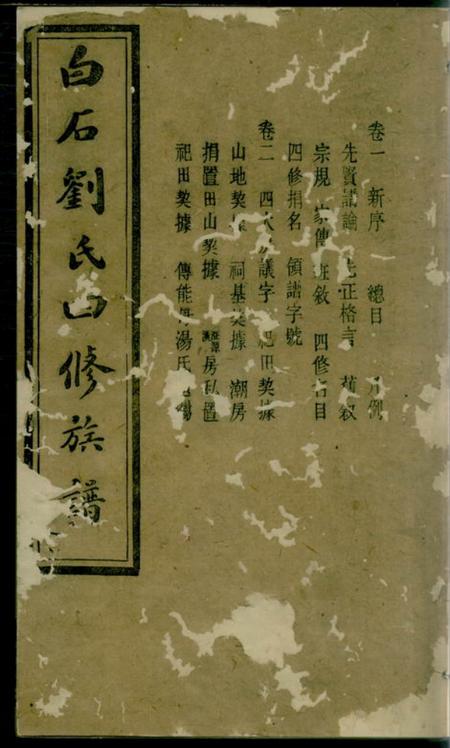 卷一 新序 總目 凡例
先賢譜論 先正格言 舊敘
宗規 家傳 班敘 四修名目
四修捐名 領譜字號
卷二 四 議字 祀田契據
山地契據 祠基契據 潮房
捐置田山契據 房私置
祀田契據 傳能 湯氏
白石劉氏四修族譜